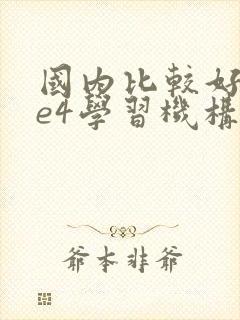 國內比較好
e4學習機構
爺本非爺